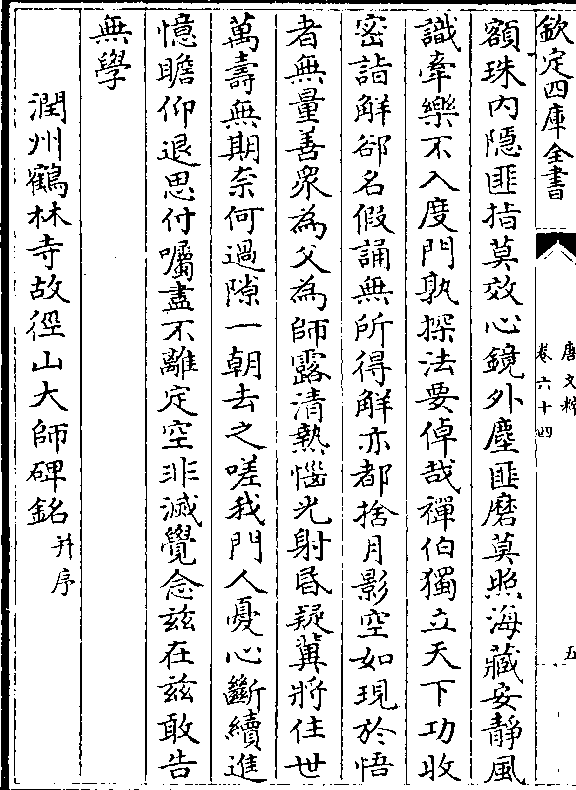 欽定四庫全書
唐文粹
卷六十四
五
額珠内隱匪指莫效心鏡外塵匪磨莫照海藏安静風
識牽樂不入度門孰探法要倬哉禪伯獨立天下功收
密詣解郤名假誦無所得解亦都捨月影空如現於悟
者無量善衆為父為師露清熱惱光射昏疑冀將住世
萬壽無期奈何過隙一朝去之嗟我門人憂心斷續進
憶瞻仰退思付囑盡不離定空非滅覺念兹在兹敢告
無學
潤州鶴林寺故徑山大師碑銘并序